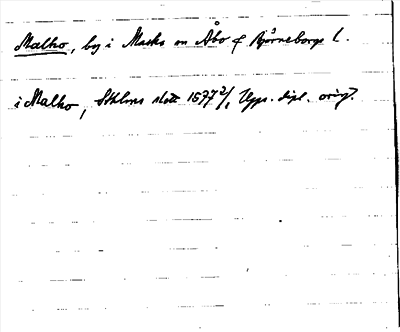 Malko, by i Masku sn Åbo o Björneborgs l.
i Malko, Sthlms slott 1577 2/1, Upps. dipl. orig.